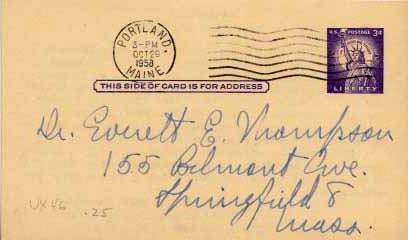 PORTLAND
3-PM
OCT 29
1958
MAINE
U.S. POSTAGE 3¢
LIBERTY
THIS SIDE OF CARD IS FOR ADDRESS
Dr. Everett E. Thompson
155 Belmont Ave.
Springfield 8
Mass.
UX46 .25